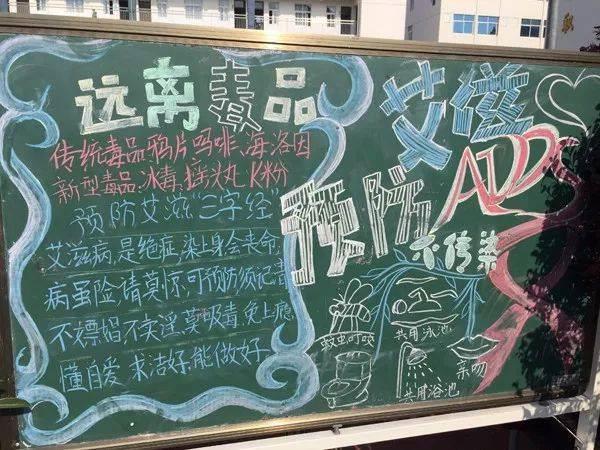 远离毒品
传统毒品鸦片吗啡、海洛因
新型毒品、冰毒、摇头丸、K粉
预防艾滋“三字经”
艾滋病,是绝症,染上身会丧命,
病虽险,请莫惊,可预防须记清
不嫖娼不卖淫,莫吸毒,免上瘾
懂自爱,求洁好,能做好
艾滋
预防AIDS
不传染
蚊虫叮咬
共用泳池
亲吻
共用浴池